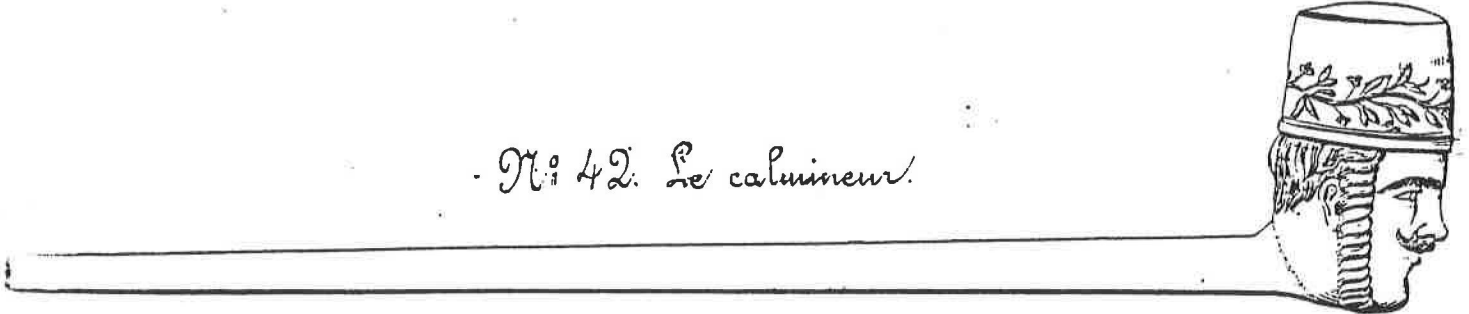 Nº 42. Le calmineur.